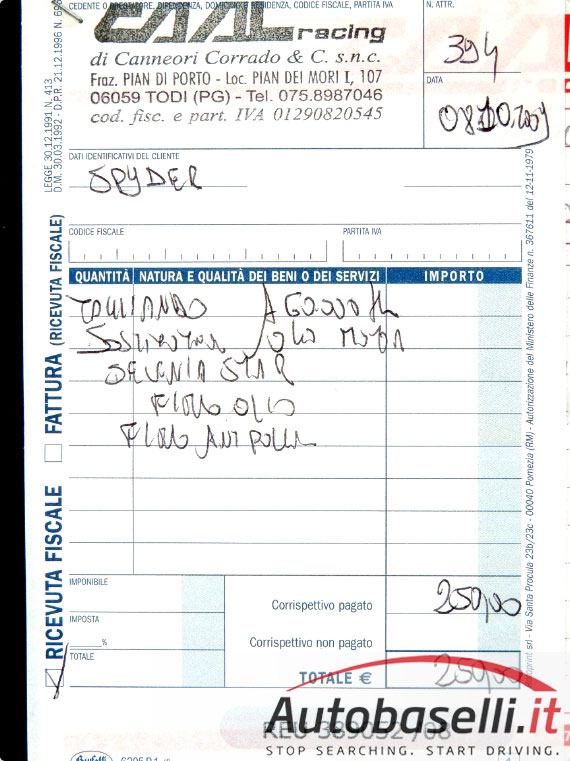 CEDENTE O PRESTATORE, DIPENDENZA, DOMICILIO O RESIDENZA, CODICE FISCALE, PARTITA IVA
N. ATTR.
racing
394
di Canneori Corrado & C. s.n.c.
Fraz. PIAN DI PORTO - Loc. PIAN DEI MORI I, 107
06059 TODI (PG) - Tel. 075.8987046
cod. fisc. e part. IVA 01290820545
DATA
LEGGE 30.12.1991 N. 413
D.M. 30.03.1992 - D.P.R. 21.12.1996 N. 696
DATI IDENTIFICATIVI DEL CLIENTE
SPYDER
CODICE FISCALE
PARTITA IVA
QUANTITÀ NATURA E QUALITÀ DEI BENI O DEI SERVIZI IMPORTO
TAGLIANDO A 60000 K
OLIO
SELENIA STAR
FILTRO OLIO
FILTRO ANTIPOLLINE
FATTURA (RICEVUTA FISCALE)
RICEVUTA FISCALE
IMPONIBILE
IMPOSTA
%
TOTALE
Corrispettivo pagato 250,00
Corrispettivo non pagato
TOTALE € 250,00
srl - Via Santa Procula 23b/23c - 00040 Pomezia (RM) - Autorizzazione del Ministero delle Finanze n. 367611 del 12-11-1979
Autobaselli.it
STOP SEARCHING. START DRIVING.